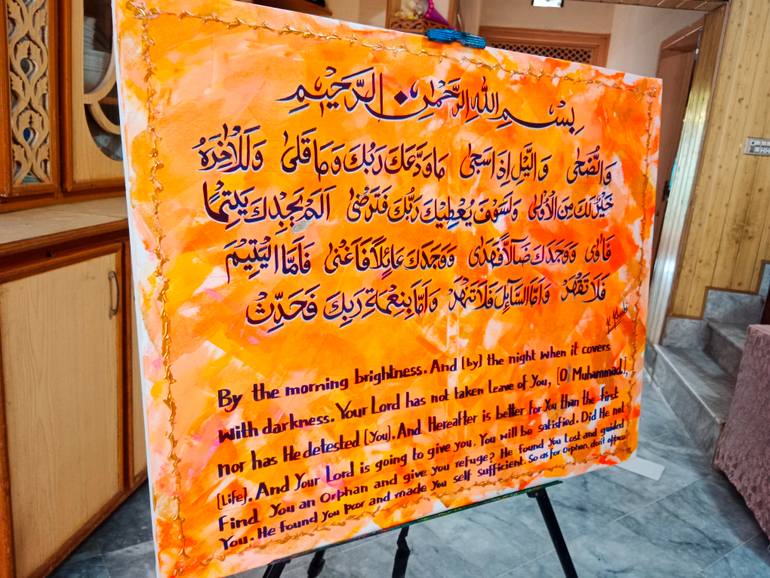 بِسْمِ اللهِ الرَّحْمٰنِ الرَّحِيْمِ
وَالضُّحٰى وَالَّيْلِ اِذَا سَجٰى مَا وَدَّعَكَ رَبُّكَ وَمَا قَلٰى وَلَلْاٰخِرَةُ
خَيْرٌ لَّكَ مِنَ الْاُوْلٰى وَلَسَوْفَ يُعْطِيْكَ رَبُّكَ فَتَرْضٰى اَلَمْ يَجِدْكَ يَتِيْمًا
فَاٰوٰى وَوَجَدَكَ ضَآلًّا فَهَدٰى وَوَجَدَكَ عَآئِلًا فَاَغْنٰى فَاَمَّا الْيَتِيْمَ
فَلَا تَقْهَرْ وَاَمَّا السَّآئِلَ فَلَا تَنْهَرْ وَاَمَّا بِنِعْمَةِ رَبِّكَ فَحَدِّثْ
By the morning brightness. And (by) the night when it covers
with darkness. Your Lord has not taken leave of You, [O Muhammad],
nor has He detested (You). And Hereafter is better for You than the first
(Life). And Your Lord is going to give you. You will be satisfied. Did He not
Find You an Orphan and give you refuge? He found You Lost and guided
You. He found You Poor and made You self Sufficient. So as for Orphan, don't oppress